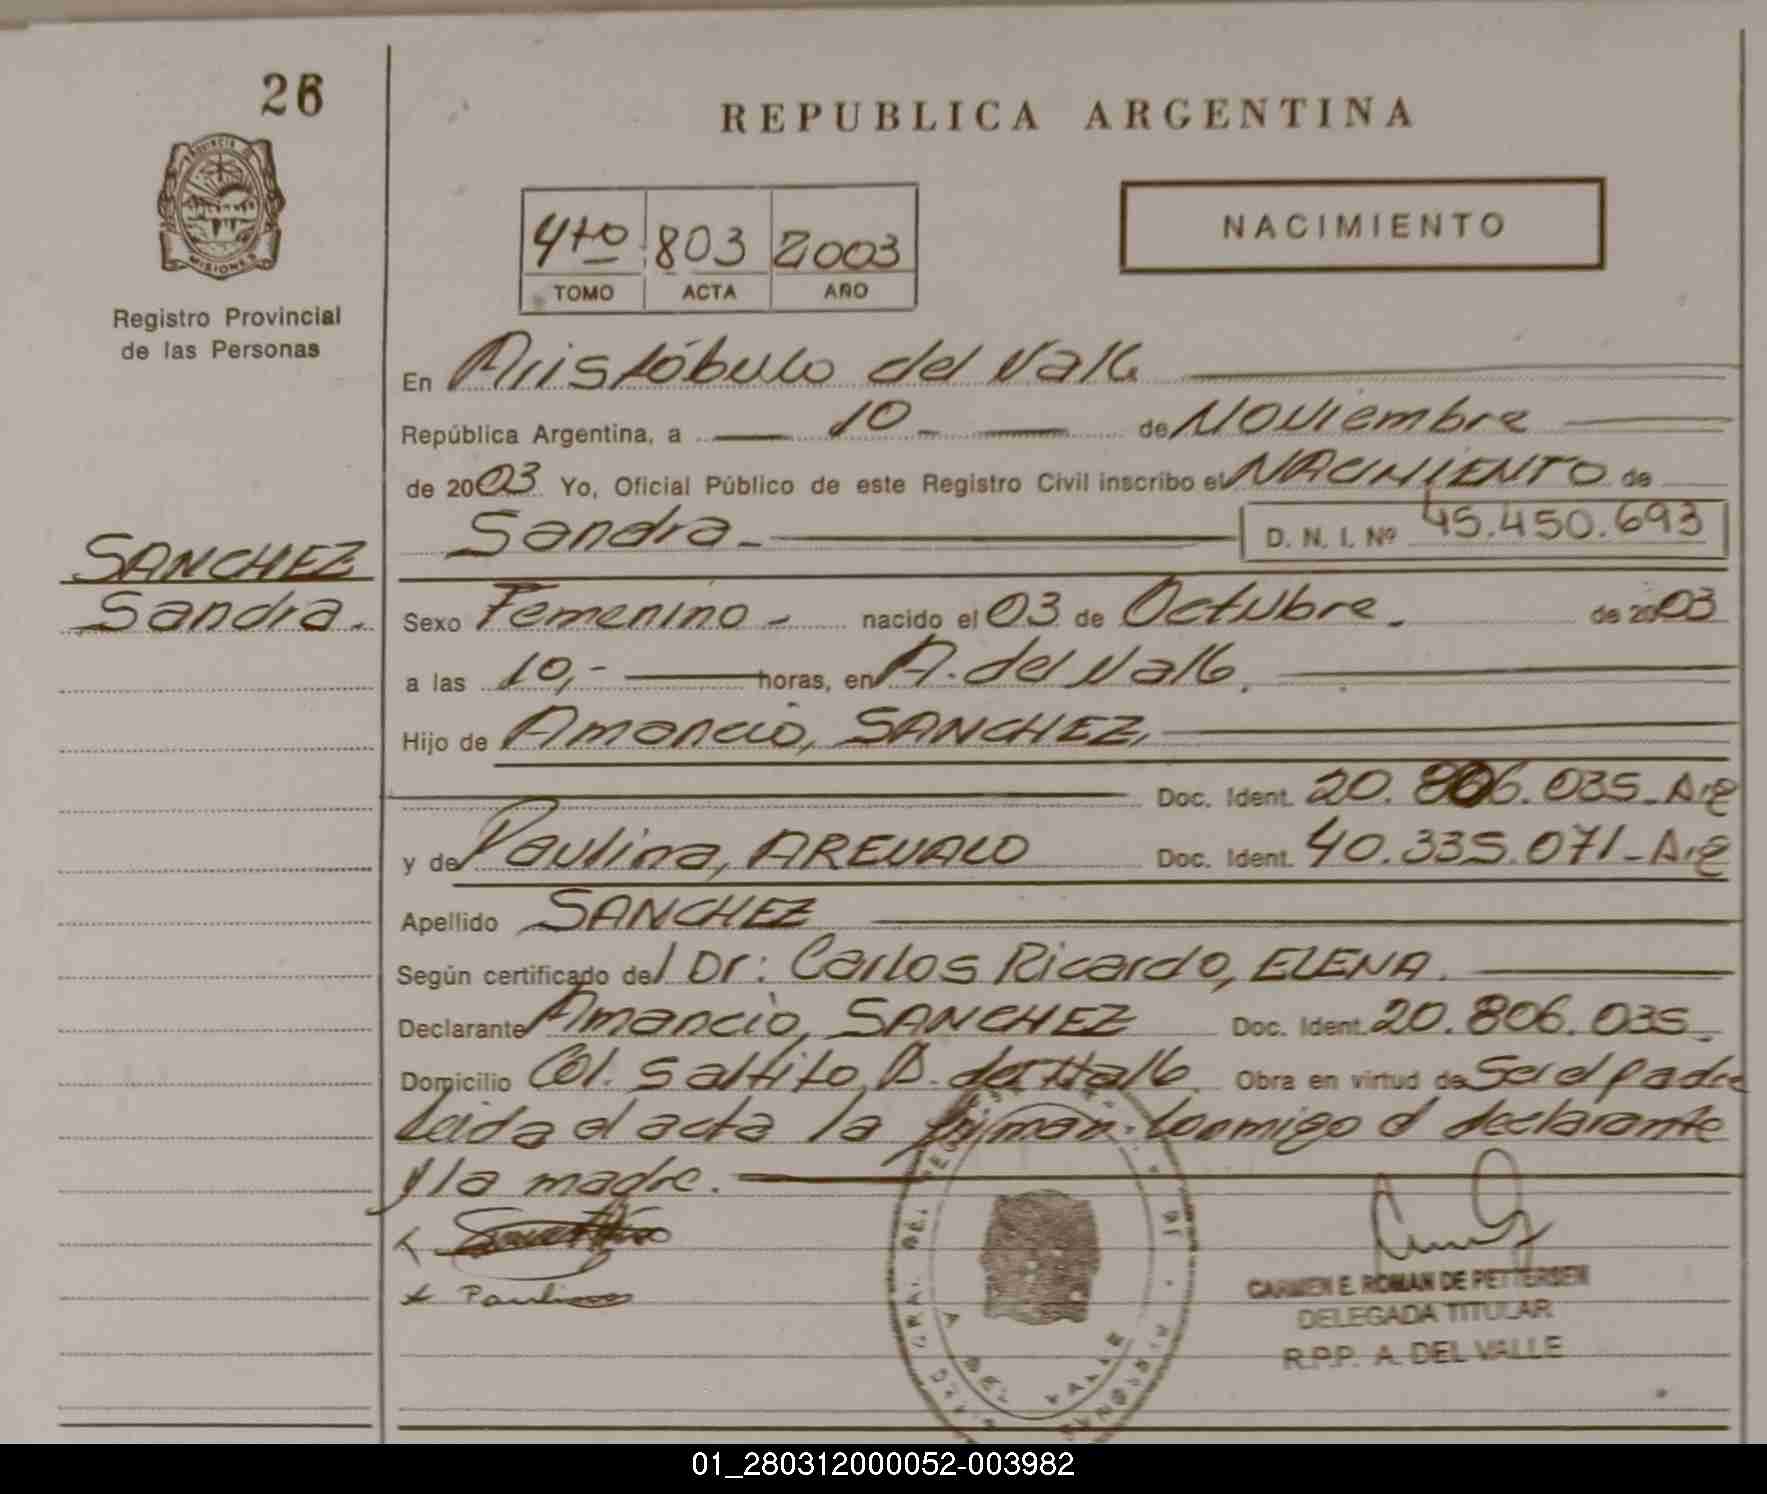 26
REPUBLICA ARGENTINA
PROVINCIA DE
MISIONES
Registro Provincial
de las Personas
4to 803 2003
TOMO ACTA AÑO
NACIMIENTO
En Aristóbulo del Valle
República Argentina, a 10 de Noviembre
de 2003 Yo, Oficial Público de este Registro Civil inscribo el NACIMIENTO de
Sandra D. N. I. Nº 45.450.693
SANCHEZ
Sandra.
Sexo Femenino nacido el 03 de Octubre. de 2003
a las 10,- horas, en A. del Valle.
Hijo de Amancio, SANCHEZ,
Doc. Ident. 20.806.035 - Arg
y de Paulina, AREVALO Doc. Ident. 40.335.071 - Arg
Apellido SANCHEZ
Según certificado del Dr: Carlos Ricardo, ELENA.
Declarante Amancio, SANCHEZ Doc. Ident. 20.806.035
Domicilio Col. Saltito, A. del Valle Obra en virtud de Ser el padre
Leida el acta la firman conmigo el declarante
y la madre.
x Paulina
CARMEN E. ROMAN DE PETTERSEN
DELEGADA TITULAR
R.P.P. A. DEL VALLE
A DEL VALLE
01_280312000052-003982